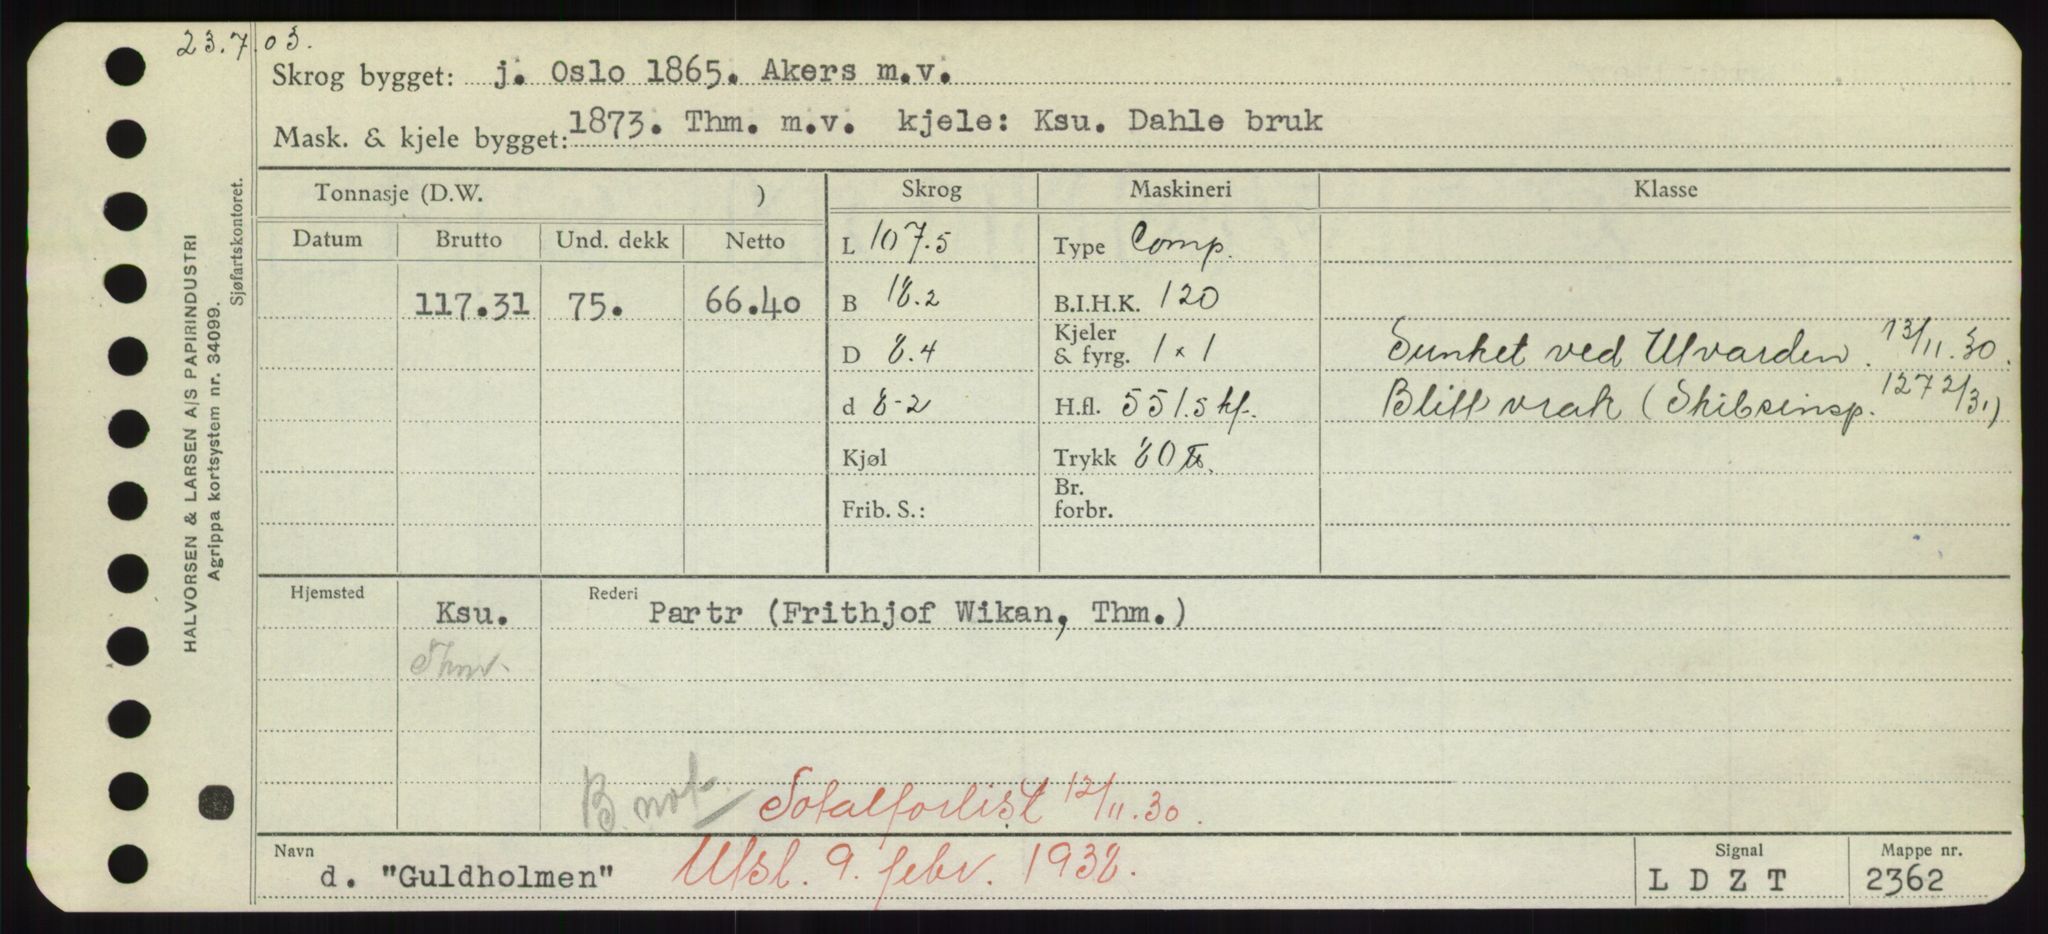 23.7.03.
Skrog bygget: j. Oslo 1865. Akers m.v.
Mask. & kjele bygget: 1873. Thm. m.v. kjele: Ksu. Dahle bruk
HALVORSEN & LARSEN A/S PAPIRINDUSTRI
Agrippa kortsystem nr. 34099.
Sjøfartskontoret.
Tonnasje (D.W. ) Skrog Maskineri Klasse
Datum Brutto Und. dekk Netto L 107.5 Type Comp.
117.31 75. 66.40 B 18.2 B.I.H.K. 120
D 8.4 Kjeler & fyrg. 1 x 1 Sunket ved Ulvarden. 13/11.30.
d 8-2 H.fl. 551.5 kf. Blitt vrak (Skibsinsp. 127 2/31)
Kjøl Trykk 80 ℔.
Frib. S.: Br. forbr.
Hjemsted Ksu. Rederi Partr (Frithjof Wikan, Thm.)
Thm.
B. not. Totalforlist 12/11.30.
Navn d. "Guldholmen" Utsl. 9. febr. 1938. Signal L D Z T Mappe nr. 2362